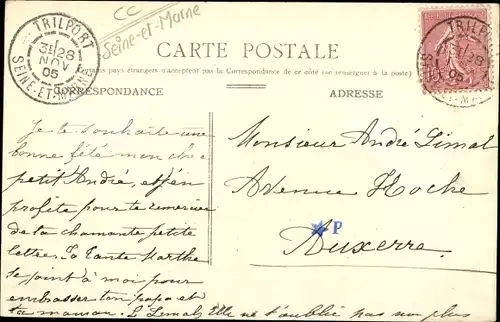 CC
Seine-et-Marne
TRILPORT
3E/28
NOV
05
SEINE-ET-MARNE
CARTE POSTALE
Certains pays étrangers n'acceptent pas la Correspondance de ce côté (se renseigner à la poste)
CORRESPONDANCE
ADRESSE
TRILPORT
05
Je te souhaite une
bonne fête mon cher
petit André, et j'en
profite pour te remercier
de la charmante petite
lettre. La Tante Marthe
se joint à moi pour
embrasser ton papa et
ta maman. Elle ne t'oublie pas non plus
Monsieur André Limal
Avenue Hoche
P
Auxerre